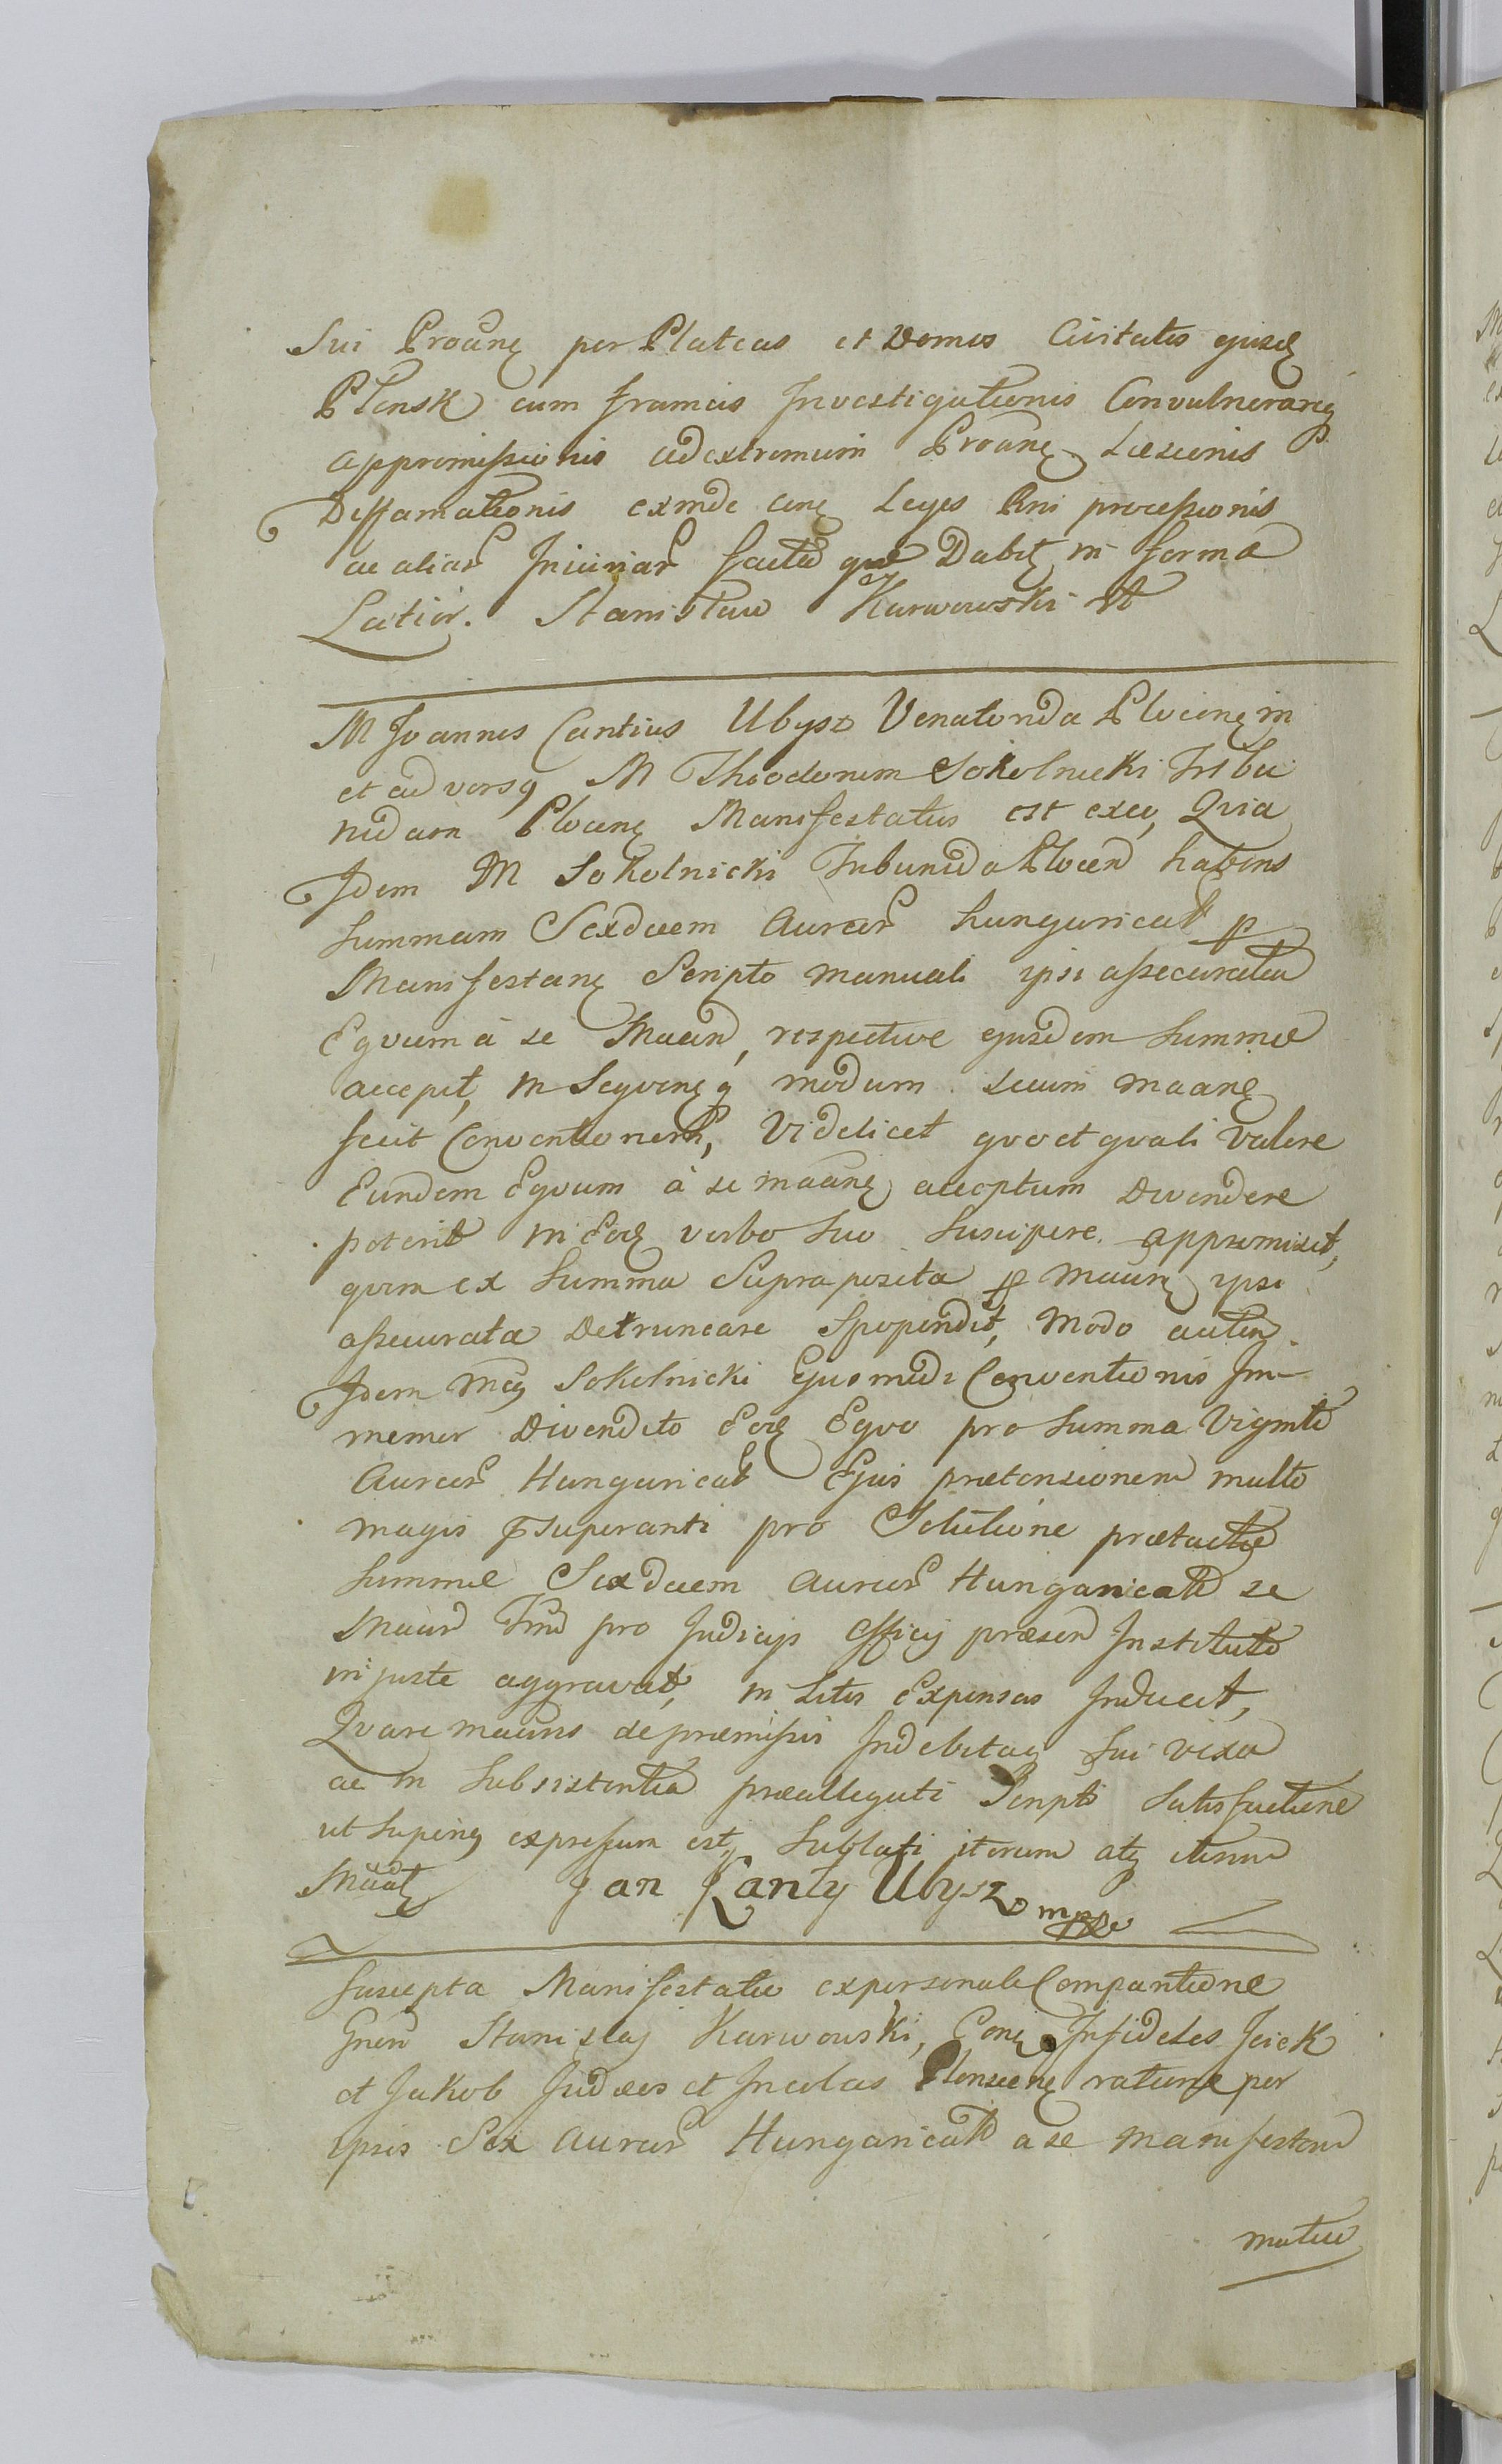 Sui Proăne per Plateas et Domos Civitatis ejusd
Plensk cum frameis Investigationis Convulnerang
appromissionis ad extremum Proăne Læsionis
Deffamationis exinde cone Leges Rni processionis
ac aliar Iniuriar factæ quæ Dabit in forma
Latior. Stanisław Karwowski
M Joannes Cantius Ubysz Venatorida Plocens in
et advers M Theodorum Sokolnicki Tribu
nidam Plocens Manifestatus est exeo, Qvia
Idem M Sokolnicki Tribunida Plocen habens
Summam Sexdecim Aureor hungaricat p
Manifestane Scripto manuali ipsi assecurata
Eqvum à se Maan, respective ejusdem Summæ
accepit, in Seqvene modum secum maane
fecit Conventionem, Videlicet qvo et qvali valore
Eundem Eqvum à se maane acceptum Divendere
poterit in Eod verbo suo suscipere appromisit,
qvin ex Summa Supra posita p Maane ipsi
assecurata Detruncare Spopondit, Modo autem
Idem Mcus Sokolnicki Ejusmodi Conventionis Im
memor Divendito Eod Eqvo pro Summa Viginti
Aureor Hungaricat Ejus prætensionem multo
magis superanti pro Solutione prætactæ
Summæ Sexdecim Aureor Hungaricat se
Maan Trno pro Judicijs Officij præsen Instituto
injuste aggravat, in Litis Expensas Inducit,
Qvare maans de præmissis Indebitaq sui vexa
ac in Subsistentia præallegati Scripti Satisfactione
ut Superius expressum est, Sublati iterum atq iterum
Maat Jan Kanty Ubysz mppe
Suscepta Manifestatio ex personali Comparitione
Gnen Stanislaj Karwowski, Cone Infideles Icick
et Jakob Judæos et Incolas Plonscene ratione per
ipsis Sex Aureor Hungaricat a se manifestan
mutuo